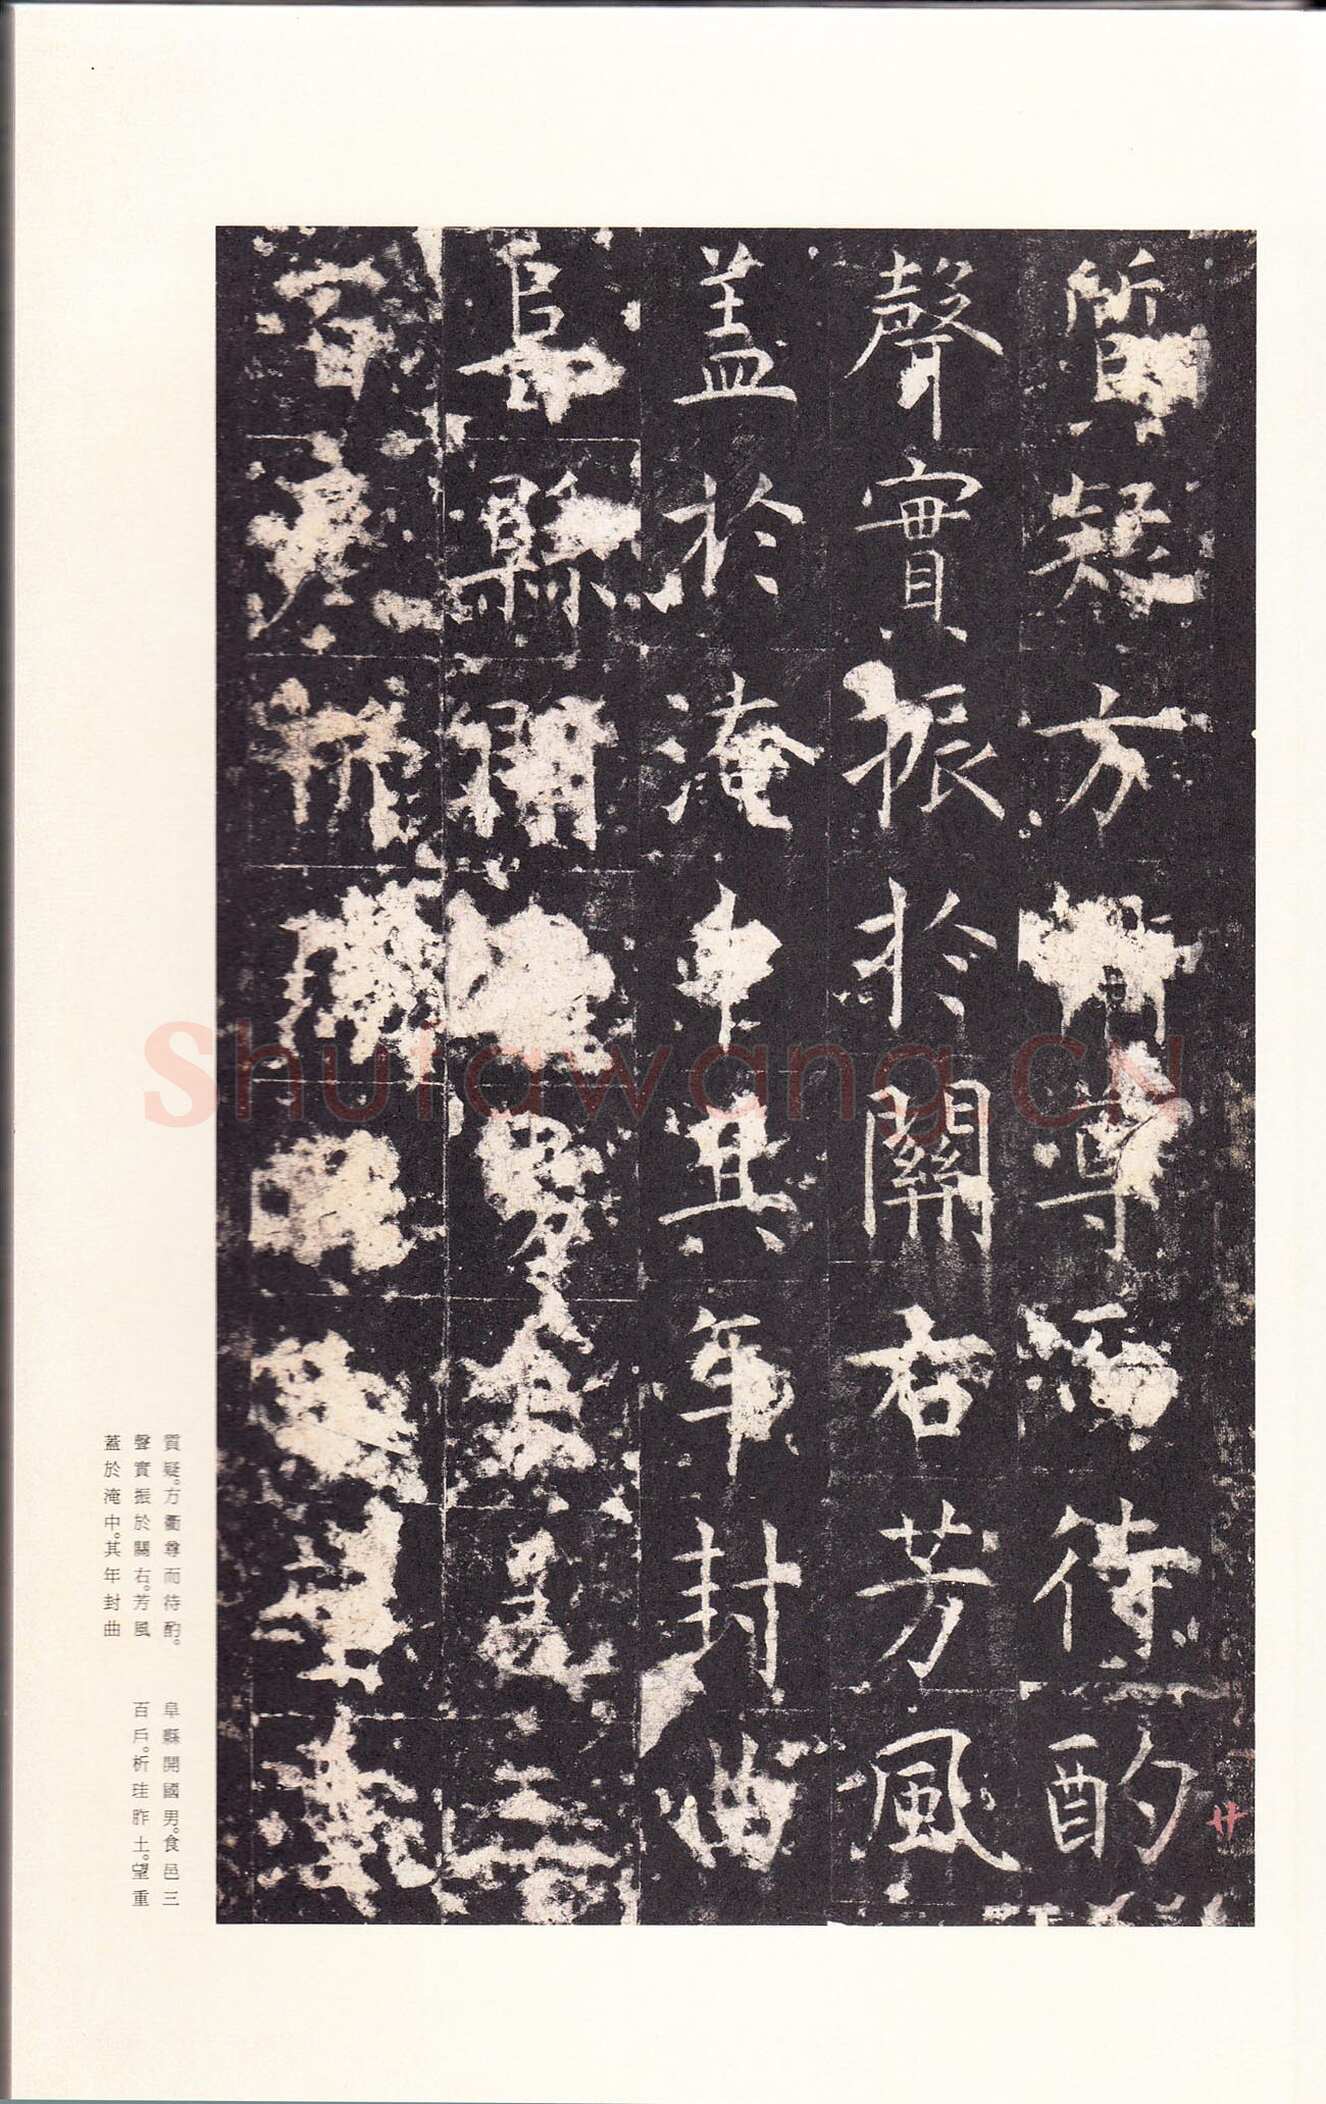 質疑方衢尊而待酌
聲實振於關右芳風
蓋於淹中其年封曲
阜縣開國男食邑三
百戶析珪胙土望重
廿
質疑。方衢尊而待酌。
聲實振於關右。芳風
蓋於淹中。其年封曲
阜縣開國男。食邑三
百戶。析珪胙土。望重
Shufawang.cn